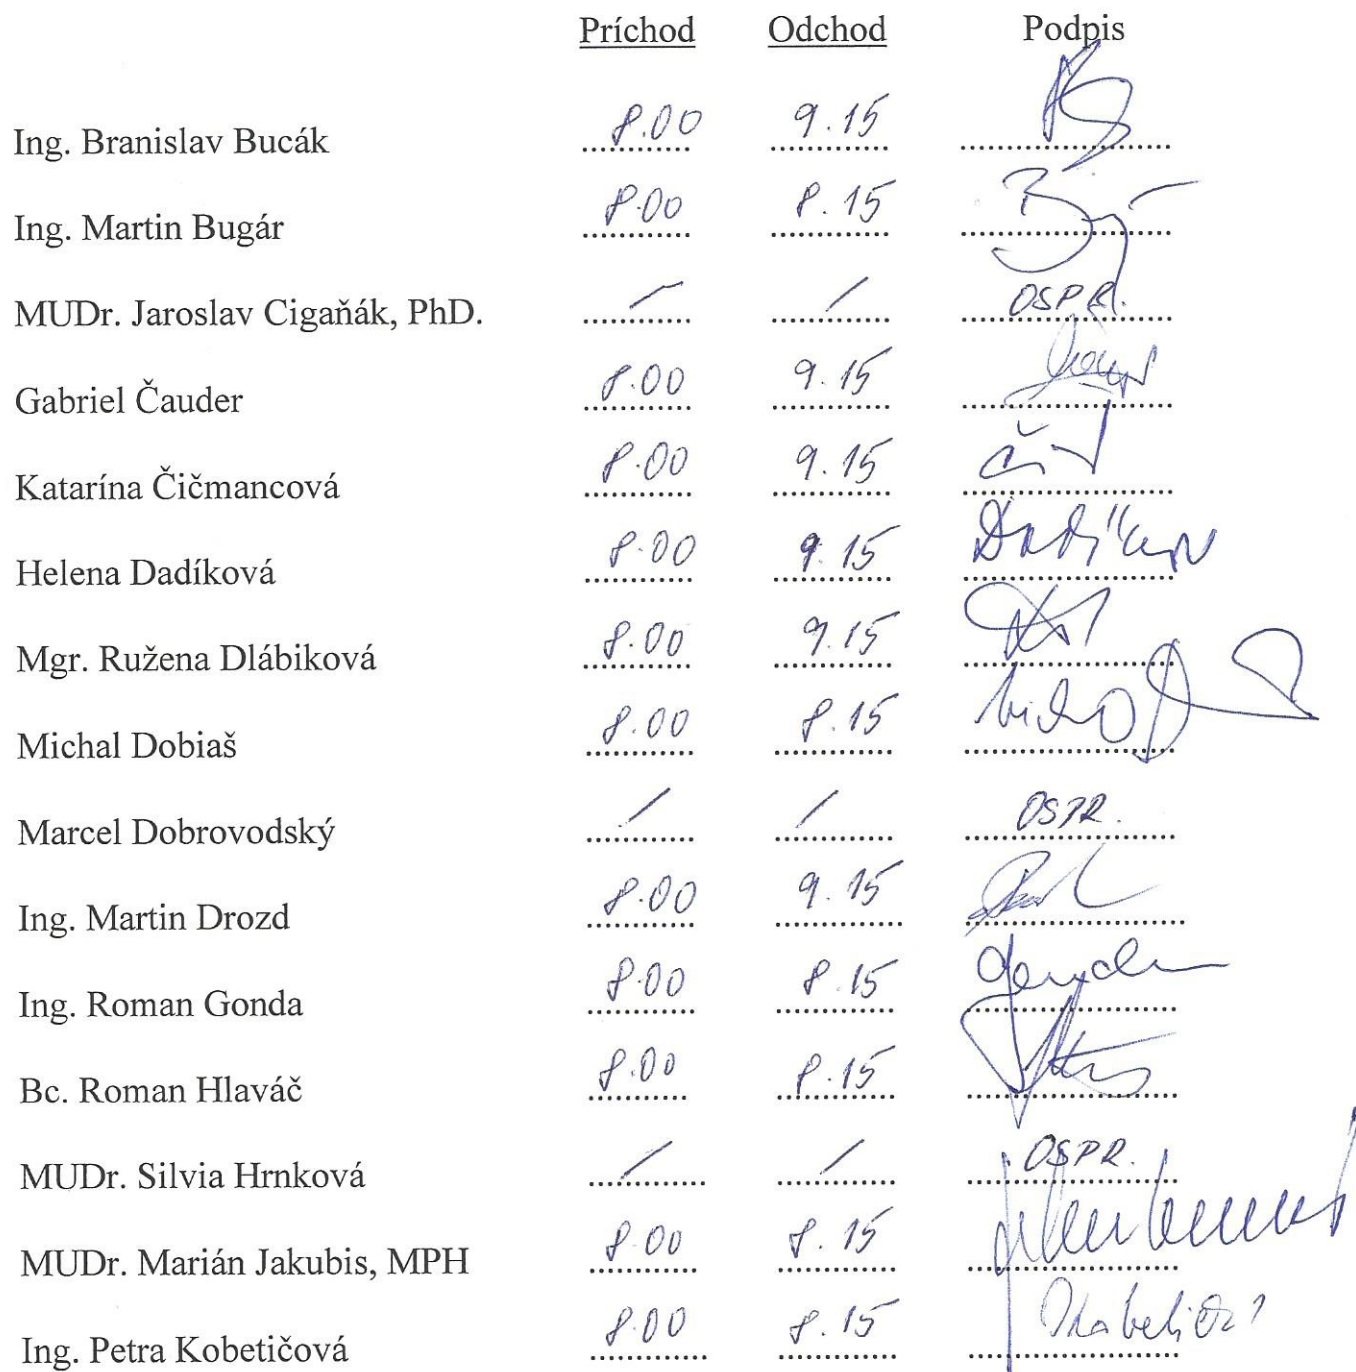 Príchod Odchod Podpis
Ing. Branislav Bucák 8.00 9.15
Ing. Martin Bugár 8.00 8.15
MUDr. Jaroslav Cigaňák, PhD. / / OSPR.
Gabriel Čauder 8.00 9.15
Katarína Čičmancová 8.00 9.15
Helena Dadíková 8.00 9.15
Mgr. Ružena Dlábiková 8.00 9.15
Michal Dobiaš 8.00 8.15
Marcel Dobrovodský / / OSPR.
Ing. Martin Drozd 8.00 9.15
Ing. Roman Gonda 8.00 8.15
Bc. Roman Hlaváč 8.00 8.15
MUDr. Silvia Hrnková / / OSPR.
MUDr. Marián Jakubis, MPH 8.00 8.15
Ing. Petra Kobetičová 8.00 8.15